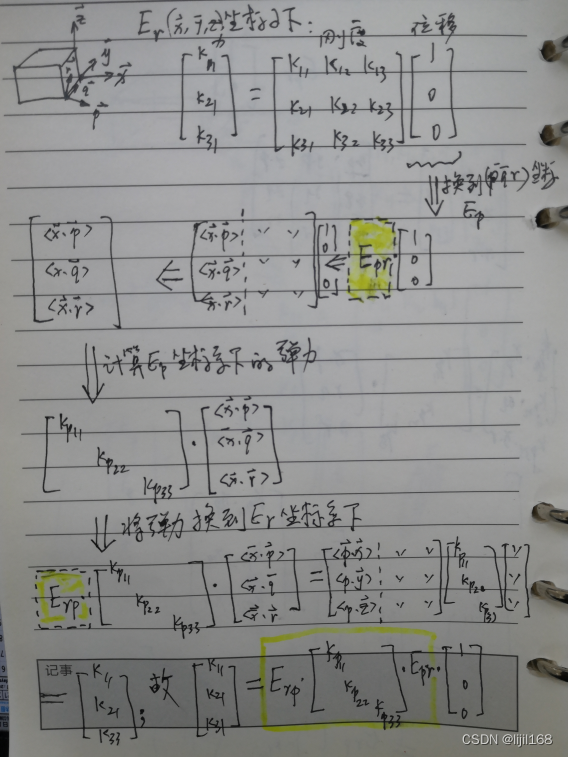 E_r (x⃗, y⃗, z⃗)坐标系下:
z⃗
y⃗
x⃗
r⃗
q⃗
p⃗
力 刚度 位移
[K_11 K_21 K_31] = [K_11 K_12 K_13; K_21 K_22 K_23; K_31 K_32 K_33] [1 0 0]
⇓ 换到(p⃗ q⃗ r⃗)坐标 E_p
[<x⃗.p⃗> <x⃗.q⃗> <x⃗.r⃗>] ⇐ [<x⃗.p⃗> 〃 〃; <x⃗.q⃗> 〃 〃; <x⃗.r⃗> 〃 〃] [1 0 0] ⇐ E_pr [1 0 0]
⇓ 计算E_p坐标系下的弹力
[K_p11 K_p22 K_p33] · [<x⃗.p⃗> <x⃗.q⃗> <x⃗.r⃗>]
⇓ 将弹力换到E_r坐标系下
E_rp [K_p11 K_p22 K_p33] · [<x⃗.p⃗> <x⃗.q⃗> <x⃗.r⃗>] = [<p⃗.x⃗> 〃 〃; <p⃗.y⃗> 〃 〃; <p.z⃗> 〃 〃] [K_p11 K_p22 K_p33] [〃 〃 〃]
记事
= [K_11 K_21 K_33]; 故 [K_11 K_21 K_31] = E_rp · [K_p11 K_p22 K_p33] · E_pr · [1 0 0]
CSDN @lijil168